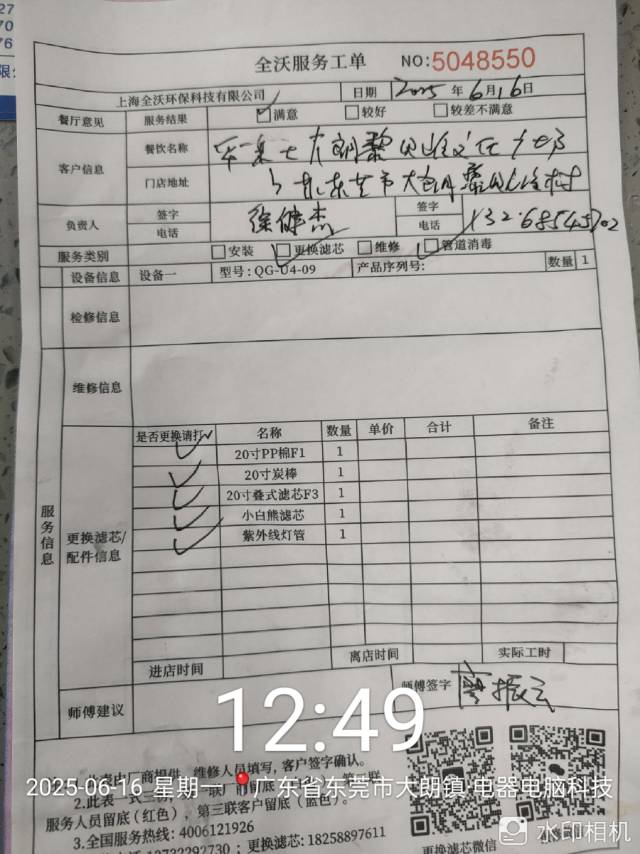 27
70
76
限公
全沃服务工单 NO:5048550
上海全沃环保科技有限公司 日期 2025 年 6 月 16 日
餐厅意见 服务结果 满意 较好 较差不满意
客户信息 餐饮名称
门店地址 广东东莞市大朗
负责人 签字 徐健杰 签字
电话 电话
服务类别 安装 更换滤芯 维修 管道消毒
设备信息 设备一 型号: QG-U4-09 产品序列号: 数量 1
检修信息
维修信息
服务信息
更换滤芯/
配件信息
是否更换请打√ 名称 数量 单价 合计 备注
20寸PP棉F1 1
20寸炭棒 1
20寸叠式滤芯F3 1
小白熊滤芯 1
紫外线灯管 1
进店时间 离店时间 实际工时
师傅建议 师傅签字 廖振云
12:49
维修人员填写,客户签字确认。
2025-06-16 星期一 广东省东莞市大朗镇·电器电脑科技
2.此表一式三份,
服务人员留底(红色),第三联客户留底(蓝色)。
3.全国服务热线: 4006121926
更换滤芯: 18258897611
水印相机